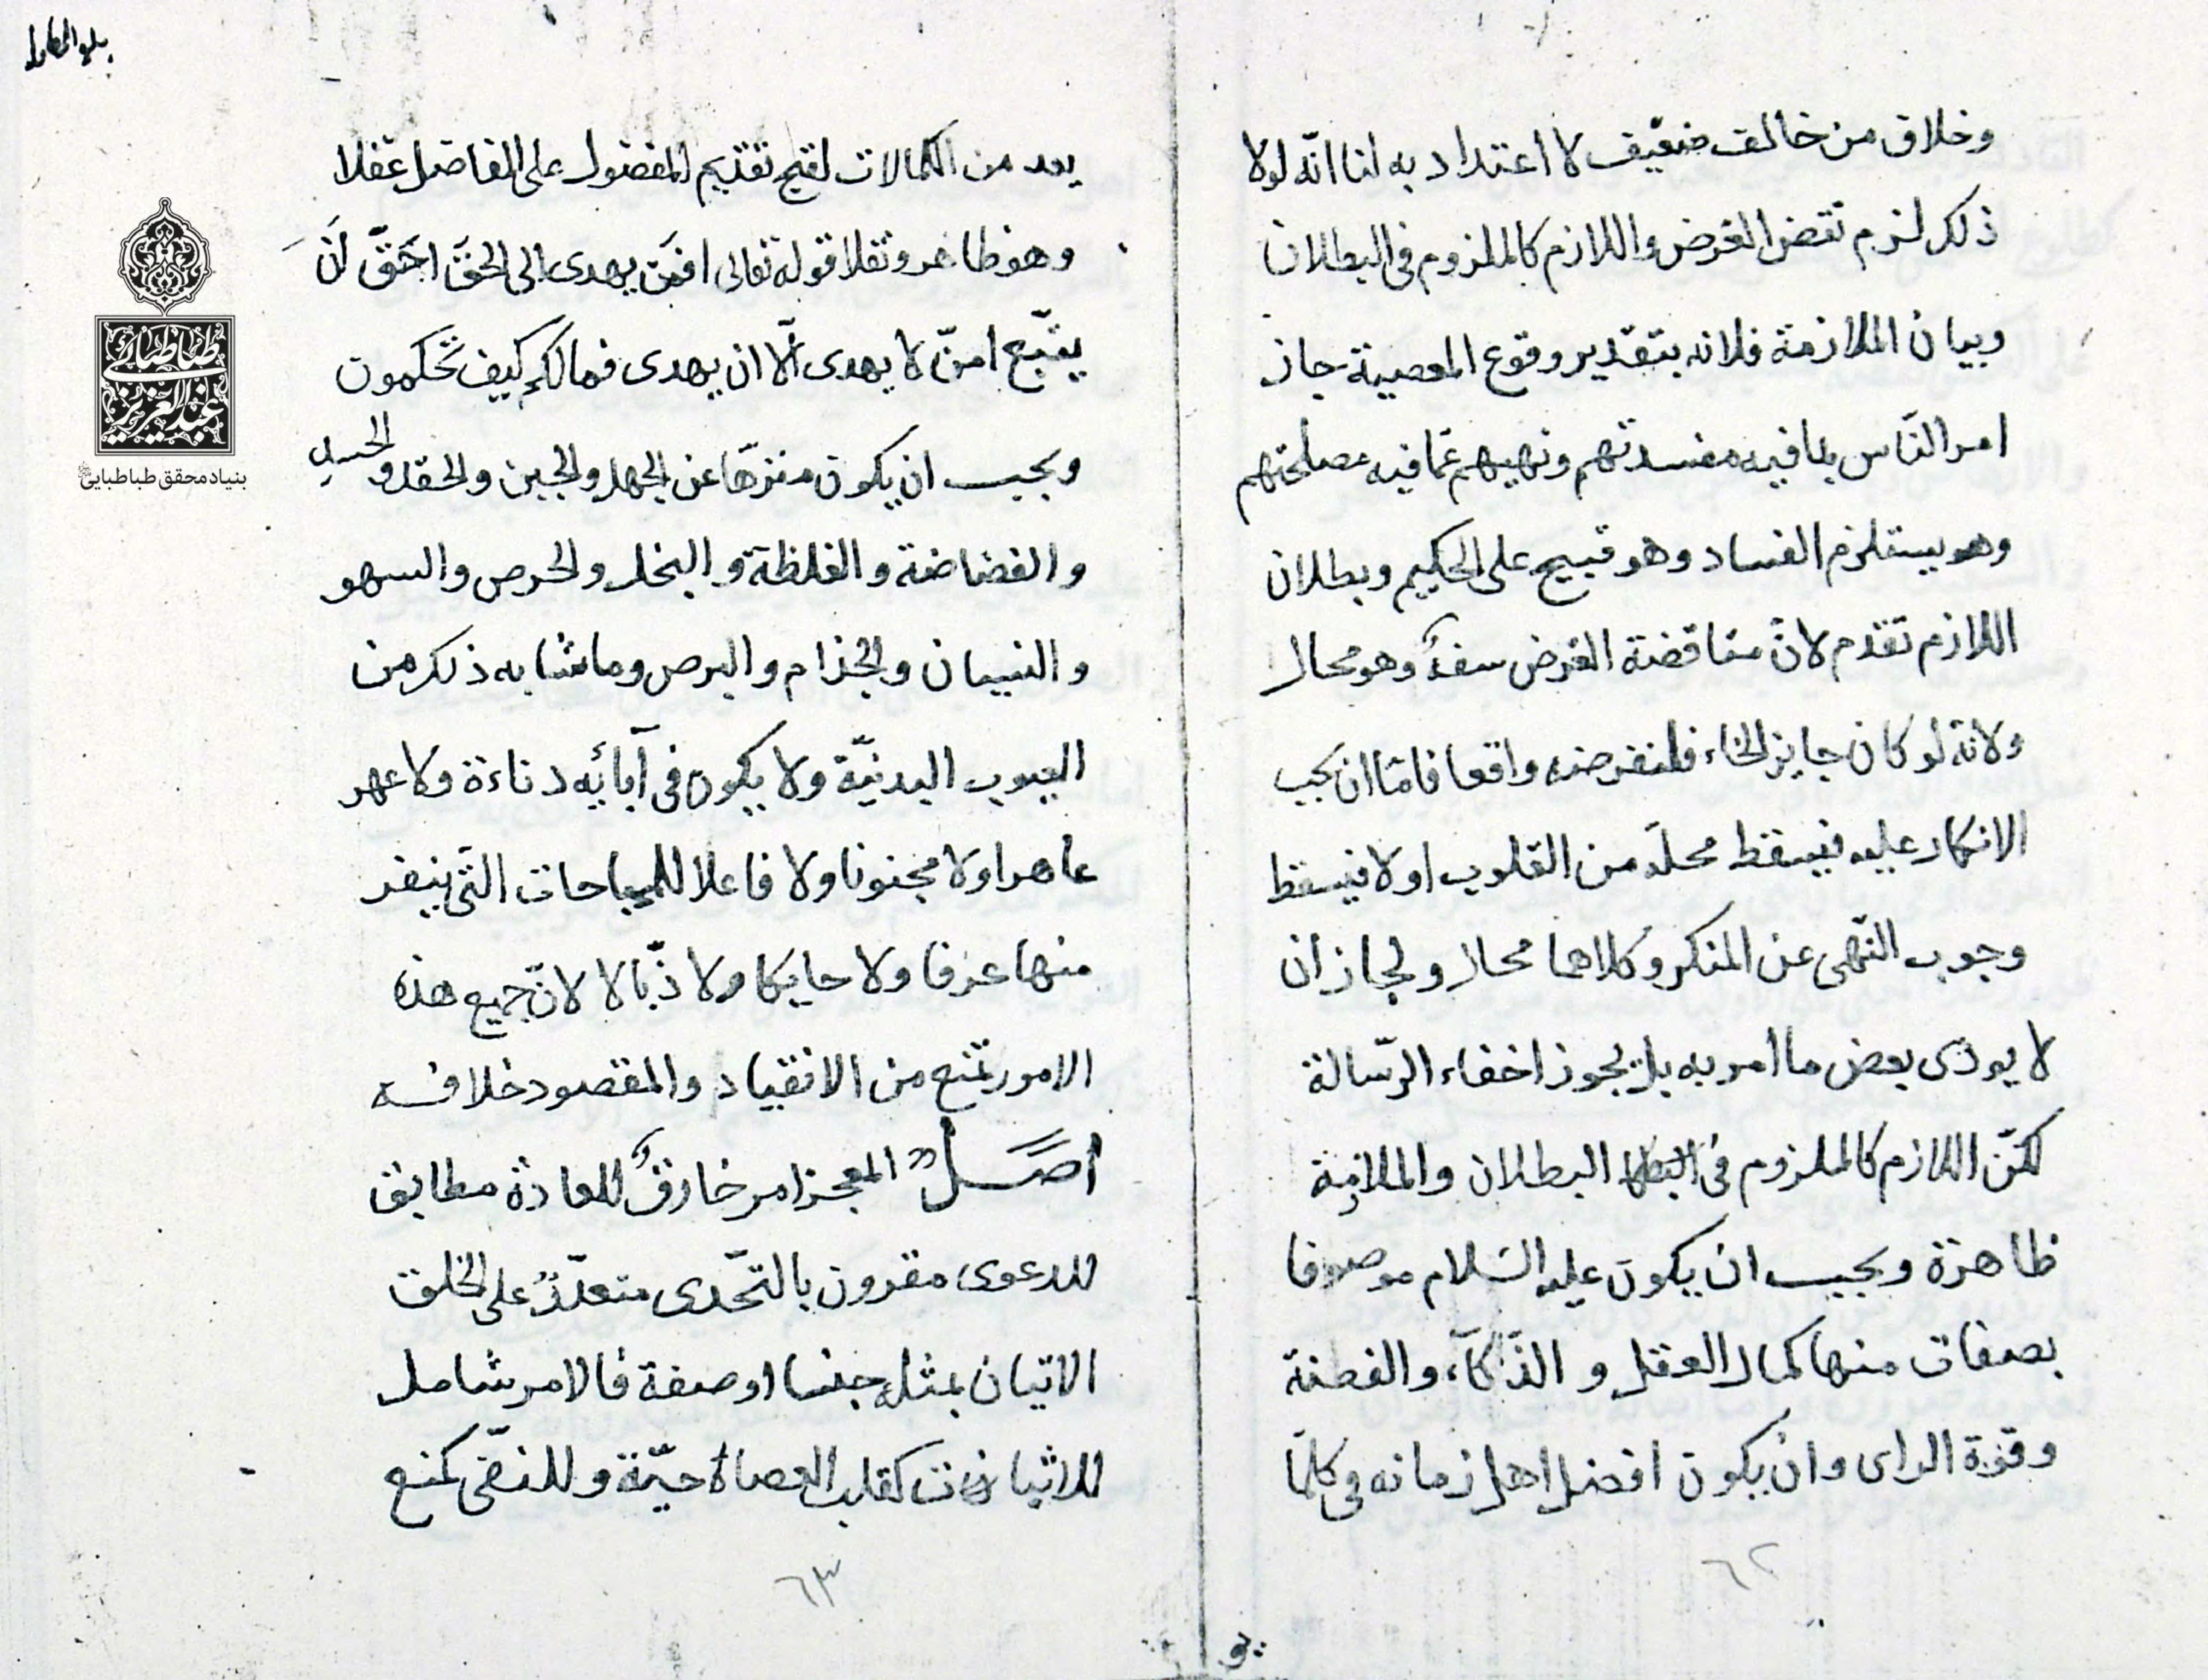 وخلاف من خالف ضعيف لا اعتداد به لنا انّه لولا
ذلك لزم نقض الغرض واللازم كالملزوم فى البطلان
وبيان الملازمة فلانه بتقدير وقوع المعصية جاز
امر النّاس بما فيه مفسدتهم ونهيهم عمّا فيه مصلحتهم
وهو يستلزم الفساد وهو قبيح على الحكيم وبطلان
اللازم تقدم لانّ مناقضة الغرض سفهٌ وهو محال
ولانّه لو كان جايز الخطاء فلنفرضه واقعا فامّا ان يجب
الانكار عليه فيسقط محلّه من القلوب او لا فيسقط
وجوب النّهى عن المنكر وكلاهما محال ولجاز ان
لا يودى بعض ما امر به بل يجوز اخفاء الرّسالة
لكنّ اللازم كالملزوم فى البطلان والملازمة
ظاهرة ويجب ان يكون عليه السّلام موصوفا
بصفات منها كمال العقل والذّكآء والفطنة
وقوّة الراى وان يكون افضل اهل زمانه فى كلّما
٦٢
يعد من الكمالات لقبح تقديم المفضول على الفاضل عقلا
وهو ظاهر ونقلا قوله تعالى افمن يهدى الى الحقّ احَقّ اَن
يتّبع امنّ لا يهدى الّا ان يهدى فما لكم كيف تحكمون
ويجب ان يكون منزّها عن الجهل والجبن والحقد والحسد
والفضاضة والغلظة والبخل والحرص والسهو
والنسيان والجذام والبرص وما شابه ذلك من
العيوب البدنيّة ولا يكون فى آبائه دناءة ولا عهر
عاهرا ولا مجنونا ولا فاعلا للمباحات الّتى ينفر
منها عرفا ولا حايكا ولا زبّالا لانّ جميع هذه
الامور تمنع من الانقياد والمقصود خلافه
اصل المعجز امر خارقٌ للعادة مطابق
للدعوى مقرون بالتّحدى متعذّرٌ على الخلق
الاتيان بمثله جنسا او صفة فالامر شامل
للاثبات كقلب العصاة حيّة وللنفى كمنع
٦٣
طباطبائى
عبدالعزيز
بنیاد محقق طباطبایی